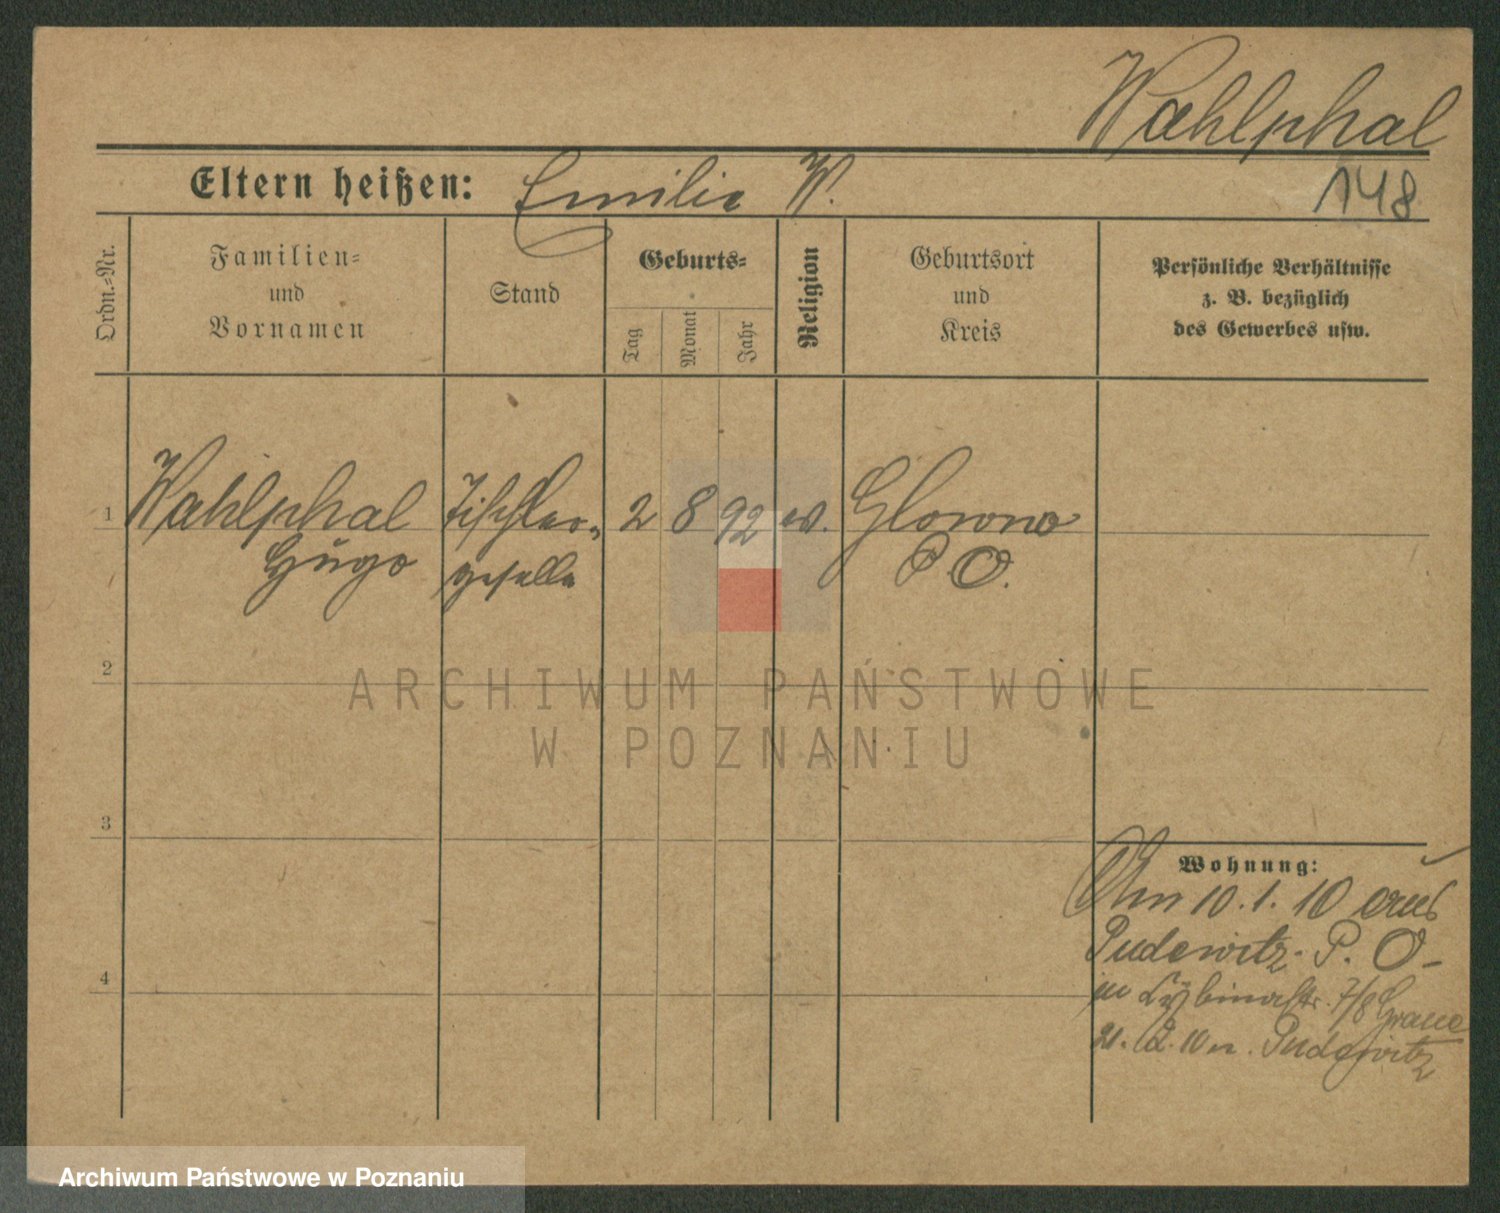 Wahlphal
148
Eltern heißen: Emilie W.
Ordn.-Nr.
Familien-
und
Vornamen
Stand
Geburts-
Tag
Monat
Jahr
Religion
Geburtsort
und
Kreis
Persönliche Verhältnisse
z. B. bezüglich
des Gewerbes usw.
1 Wahlphal Tischler- 2 8 92 ev. Glowno
Hugo geselle P O.
2
3
4
Wohnung:
Am 10.1.10 aus
Pudewitz. P. O-
7/8 Graue
10 n. Pudewitz
ARCHIWUM PAŃSTWOWE
W POZNANIU
Archiwum Państwowe w Poznaniu